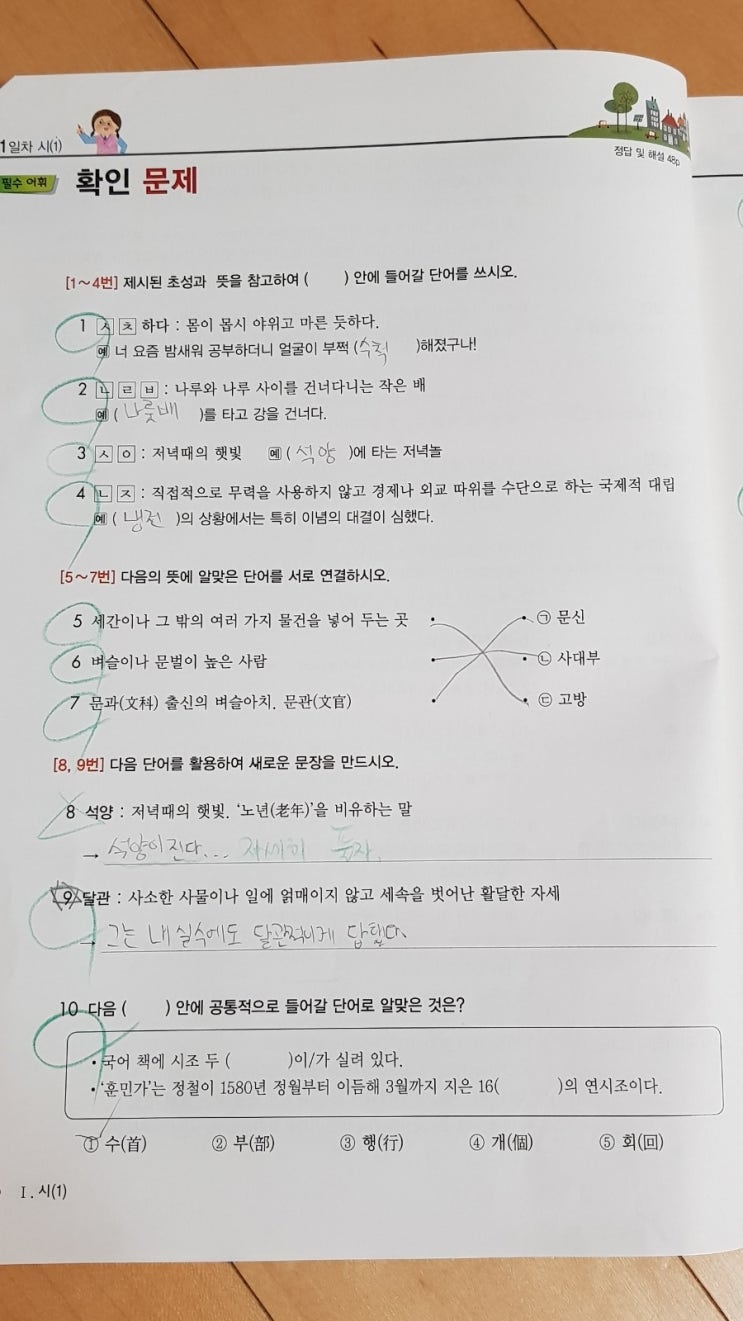 1일차 시(1)
정답 및 해설 48p
필수 어휘 확인 문제
[1~4번] 제시된 초성과 뜻을 참고하여 ( ) 안에 들어갈 단어를 쓰시오.
1 ㅅ ㅊ 하다 : 몸이 몹시 야위고 마른 듯하다.
예 너 요즘 밤새워 공부하더니 얼굴이 부쩍 (수척 )해졌구나!
2 ㄴ ㄹ ㅂ : 나루와 나루 사이를 건너다니는 작은 배
예 ( 나룻배 )를 타고 강을 건너다.
3 ㅅ ㅇ : 저녁때의 햇빛 예 ( 석양 )에 타는 저녁놀
4 ㄴ ㅈ : 직접적으로 무력을 사용하지 않고 경제나 외교 따위를 수단으로 하는 국제적 대립
예 ( 냉전 )의 상황에서는 특히 이념의 대결이 심했다.
[5~7번] 다음의 뜻에 알맞은 단어를 서로 연결하시오.
5 세간이나 그 밖의 여러 가지 물건을 넣어 두는 곳 • • ㉠ 문신
6 벼슬이나 문벌이 높은 사람 • • ㉡ 사대부
7 문과(文科) 출신의 벼슬아치. 문관(文官) • • ㉢ 고방
[8, 9번] 다음 단어를 활용하여 새로운 문장을 만드시오.
8 석양 : 저녁때의 햇빛. ‘노년(老年)’을 비유하는 말
→ 석양이 진다... 자세히 풀자.
9 달관 : 사소한 사물이나 일에 얽매이지 않고 세속을 벗어난 활달한 자세
→ 그는 내 실수에도 달관적이게 답했다.
10 다음 ( ) 안에 공통적으로 들어갈 단어로 알맞은 것은?
• 국어 책에 시조 두 ( )이/가 실려 있다.
• ‘훈민가’는 정철이 1580년 정월부터 이듬해 3월까지 지은 16( )의 연시조이다.
① 수(首) ② 부(部) ③ 행(行) ④ 개(個) ⑤ 회(回)
Ⅰ. 시(1)